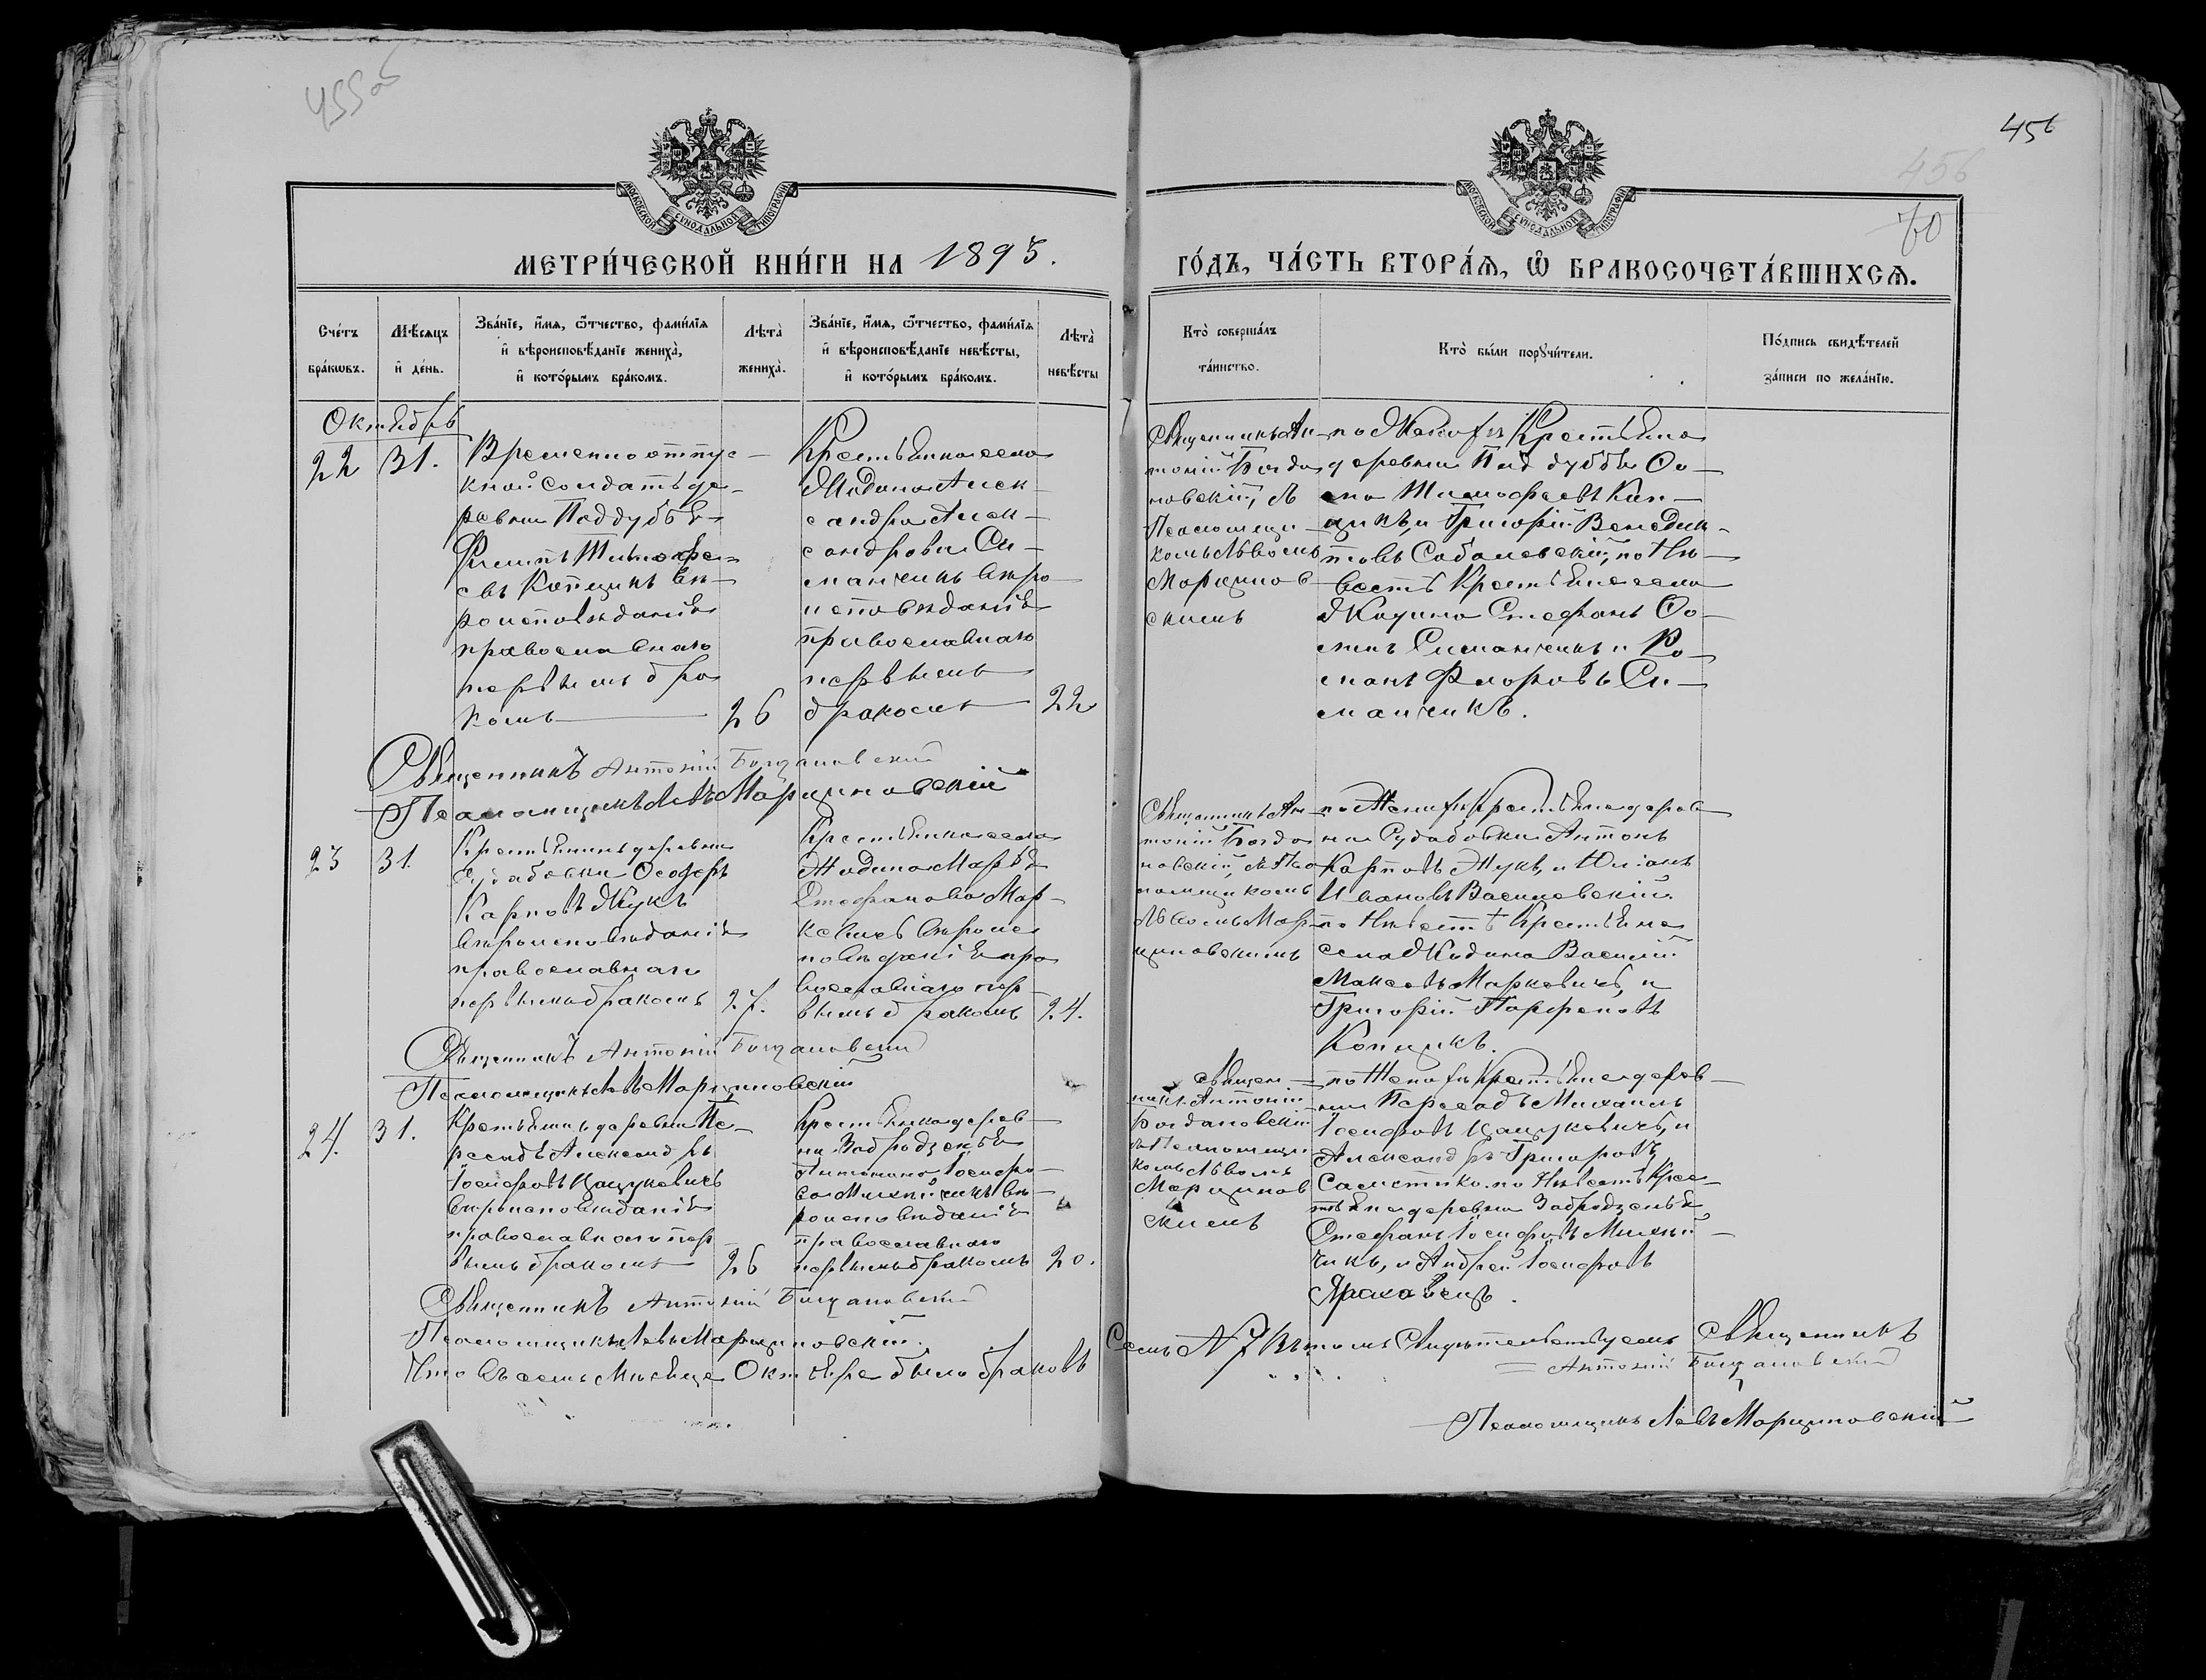 455об
456
456
70
МОСКОВСКОЙ СѴНОДАЛЬНОЙ ТИПОГРАФІИ
МОСКОВСКОЙ СѴНОДАЛЬНОЙ ТИПОГРАФІИ
МЕТРИ́ЧЕСКОЙ КНИ́ГИ НА 1895.
ГО́ДЪ, ЧА́СТЬ ВТОРА́Я, Ѡ҆ БРАКОСОЧЕТА́ВШИХСѦ.
Сче́тъ бра́кѡвъ.
Мѣ́сѧцъ и҆ де́нь.
Зва́нїе, и҆́мѧ, ѻ҆́тчество, фами́лїѧ и҆ вѣроисповѣ́данїе жениха̀, и҆ кото́рымъ бра́комъ.
Лѣта̀ жениха̀.
Зва́нїе, и҆́мѧ, ѻ҆́тчество, фами́лїѧ и҆ вѣроисповѣ́данїе невѣ́сты, и҆ кото́рымъ бра́комъ.
Лѣта̀ невѣ́сты
Кто̀ соверша́лъ та́инство.
Кто̀ бы́ли порꙋчи́тели.
По́дпись свидѣ́телей за́писи по жела́нїю.
Октябрь
22
31.
Временно отпус-
кной солдатъ де-
ревни Поддубья
Филипъ Тимофе-
евъ Копцикъ вѣ-
роисповѣданія
православнаго
первымъ бра
комъ
26
Крестьянка села
Жодина Алек-
сандра Алек-
сандрова Си-
манчикъ вѣро
исповѣданія
православнаго
первымъ
бракомъ
22
Священникъ Ан-
тоній Богда
новскій, съ
Псаломщи-
комъ Львомъ
Марцинов
скимъ
по Женихѣ Крестьяне
деревни Поддубья Ѳо-
ма Тимофеевъ Коп-
цикъ, и Григорій Венедик-
товъ Соболевскій, по Не-
вѣстѣ Крестьяне села
Жодина Стефанъ Ѳо-
минъ Симанчикъ и Ро-
манъ Флоровъ Си-
манчикъ.
Священникъ Антоній Богдановскій
Псаломщикъ Левъ Марциновскій
23
31.
Крестьянинъ деревни
Судабовки Ѳеодоръ
Карповъ Жукъ
вѣроисповѣданія
православнаго
первымъ бракомъ
27.
Крестьянка села
Жодина Марья
Стефанова Мар-
кевичъ вѣроис
повѣданія пра
вославнаго пер-
вымъ бракомъ
24.
Священникъ Ан-
тоній Богда
новскій, съ Пса
ломщикомъ
Львомъ Мар-
циновскимъ
по Женихѣ Крестьяне дерев-
ни Судабовки Антонъ
Карповъ Жукъ, и Юліанъ
Ивановъ Василевскій.
по Невѣстѣ Крестьяне
села Жодина Василій
Маркевичъ, и
Григорій Парфеновъ
Копцикъ.
Священникъ Антоній Богдановскій
Псаломщикъ Левъ Марциновскій
24.
31.
Крестьянинъ деревни Пе-
ресадъ Александръ
Іосифовъ Цацукевичъ
вѣроисповѣданія
православнаго пер-
вымъ бракомъ
26
Крестьянка дерев-
ни Забродзенья
Антонина Іосифо-
ва вѣ-
роисповѣданія
православнаго
первымъ бракомъ
20.
Священ-
никъ Антоній
Богдановскій
съ Псаломщи
комъ Львомъ
Марцинов
скимъ
по Женихѣ Крестьяне дерев-
ни Пересадъ Михаилъ
Іосифовъ Цацукевичъ, и
Александръ Григоровъ
по Невѣстѣ Крес-
тьяне деревни Забродзенья
Стефанъ Іосифовъ
и Андрей Іосифовъ
Священникъ Антоній Богдановскій
Псаломщикъ Левъ Марциновскій.
Что въ семъ Мѣсяце Октябре было браковъ
Семь № 7 въ томъ Свидѣтельствуемъ Священникъ
Антоній Богдановскій
Псаломщикъ Левъ Марциновскій